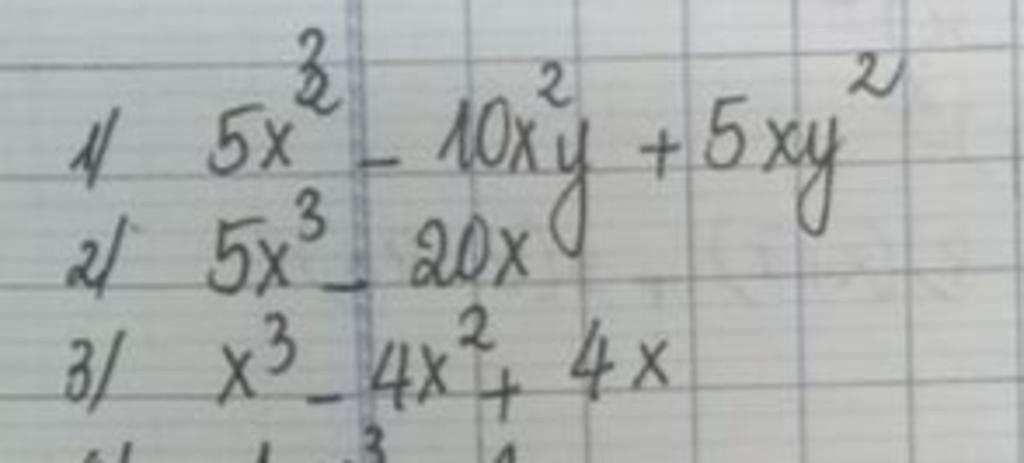 1/ 5x³ - 10x²y + 5xy²
2/ 5x³ - 20x
3/ x³ - 4x² + 4x